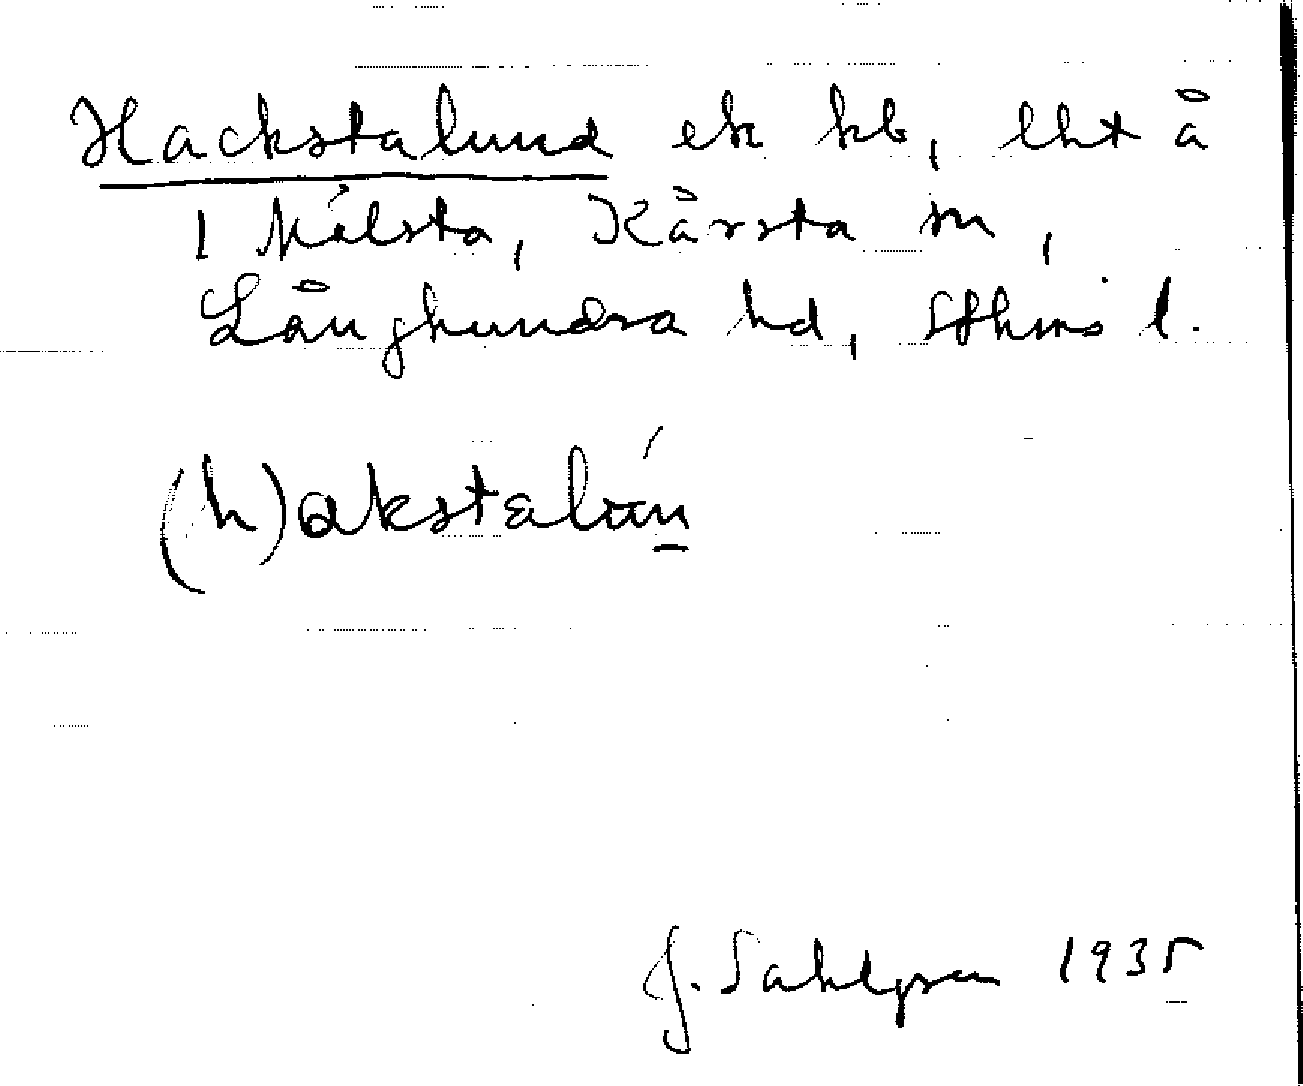 Hackstalund ek kb, lht å
1 Målsta, Kårsta sn,
Långhundra hd, Sthms l.
(h)akstalún
J. Sahlgren 1935